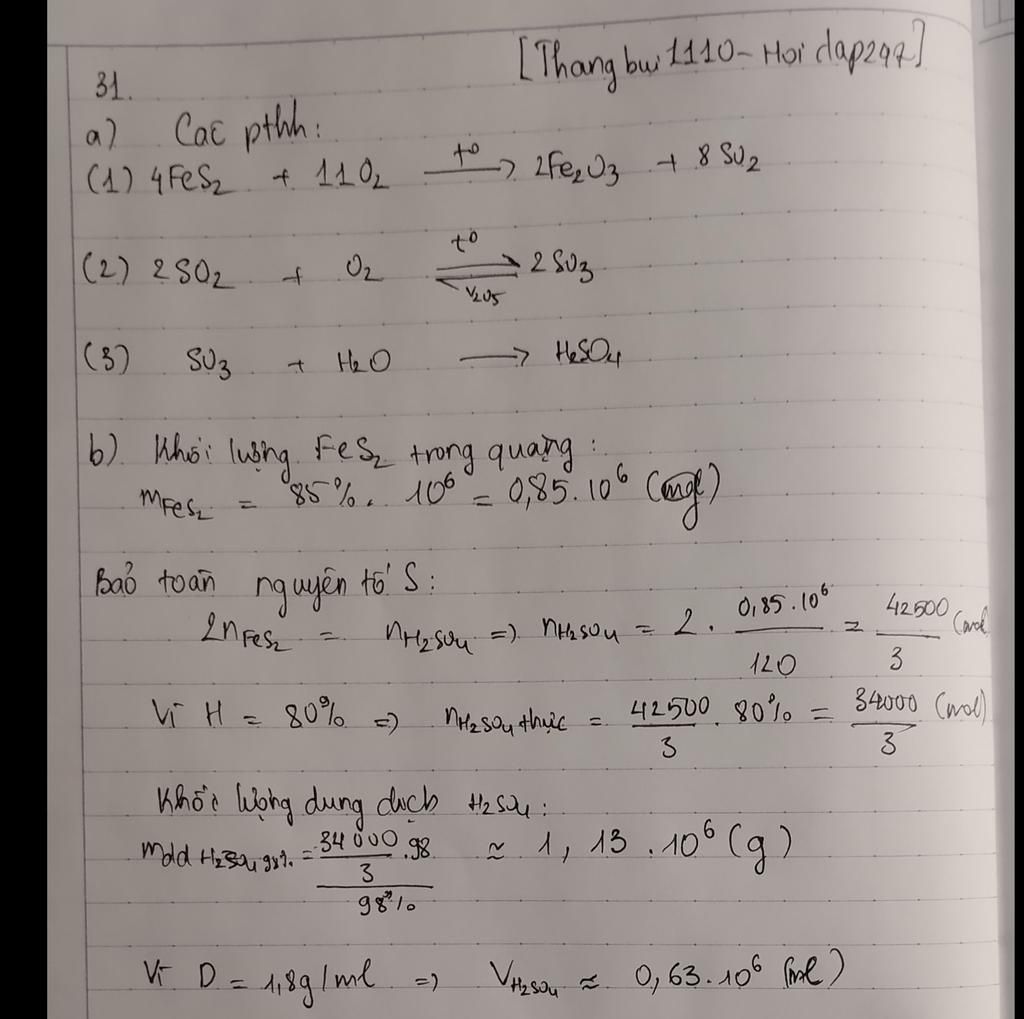 [Thangbui1110-Hoidap247]
31.
a) Các pthh:
(1) 4FeS2 + 11O2 t° → 2Fe2O3 + 8SO2
(2) 2SO2 + O2 t° ⇌ V2O5 2SO3
(3) SO3 + H2O → H2SO4
b) Khối lượng FeS2 trong quặng:
mFeS2 = 85%. 10^6 = 0,85.10^6 (g)
Bảo toàn nguyên tố S:
2nFeS2 = nH2SO4 => nH2SO4 = 2. 0,85.10^6/120 = 42500/3 (mol
Vì H = 80% => nH2SO4 thực = 42500/3 . 80% = 34000/3 (mol)
Khối lượng dung dịch H2SO4:
mdd H2SO4 98% = (34000/3 .98)/98% ≈ 1,13.10^6 (g)
Vì D = 1,8g/ml => VH2SO4 ≈ 0,63.10^6 (ml)